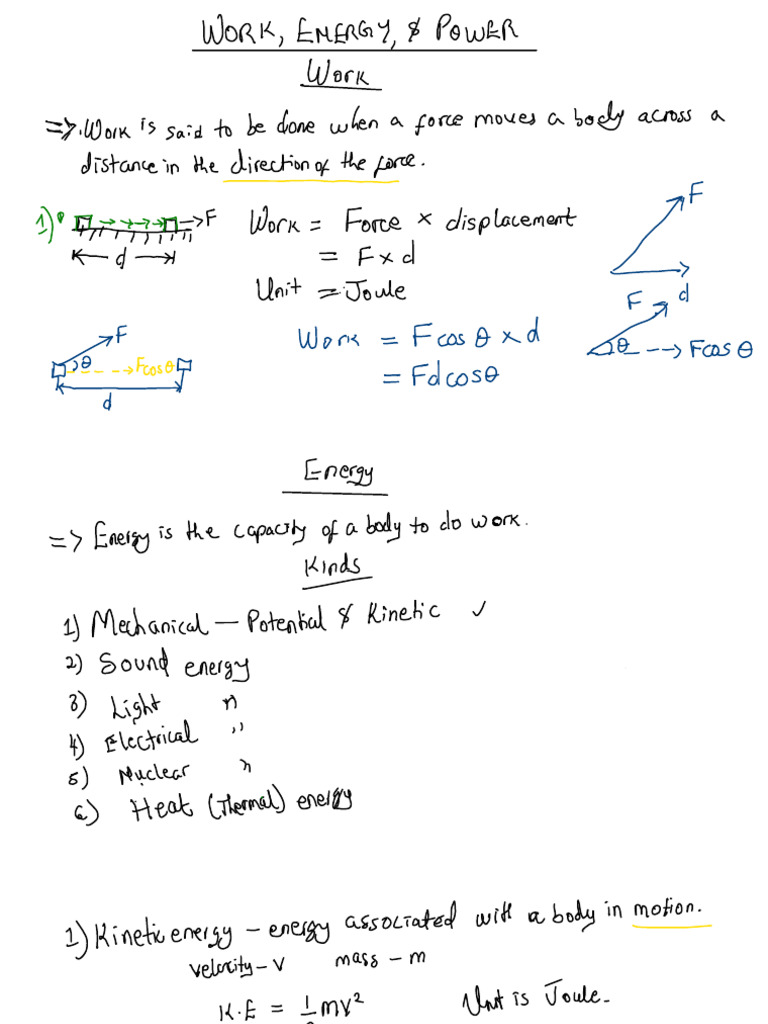 WORK, ENERGY, & POWER
Work
=> Work is said to be done when a force moves a body across a
distance in the direction of the force.
1) F
d
Work = Force × displacement
= F × d
Unit = Joule
F
d
F
θ
Fcosθ
d
Work = Fcosθ × d
= Fdcosθ
F
θ
Fcosθ
Energy
=> Energy is the capacity of a body to do work.
Kinds
1) Mechanical — Potential & Kinetic ✓
2) Sound energy
3) Light "
4) Electrical "
5) Nuclear "
6) Heat (Thermal) energy
1) Kinetic energy – energy associated with a body in motion.
velocity – v mass – m
K.E = 1/2 mv² Unit is Joule.